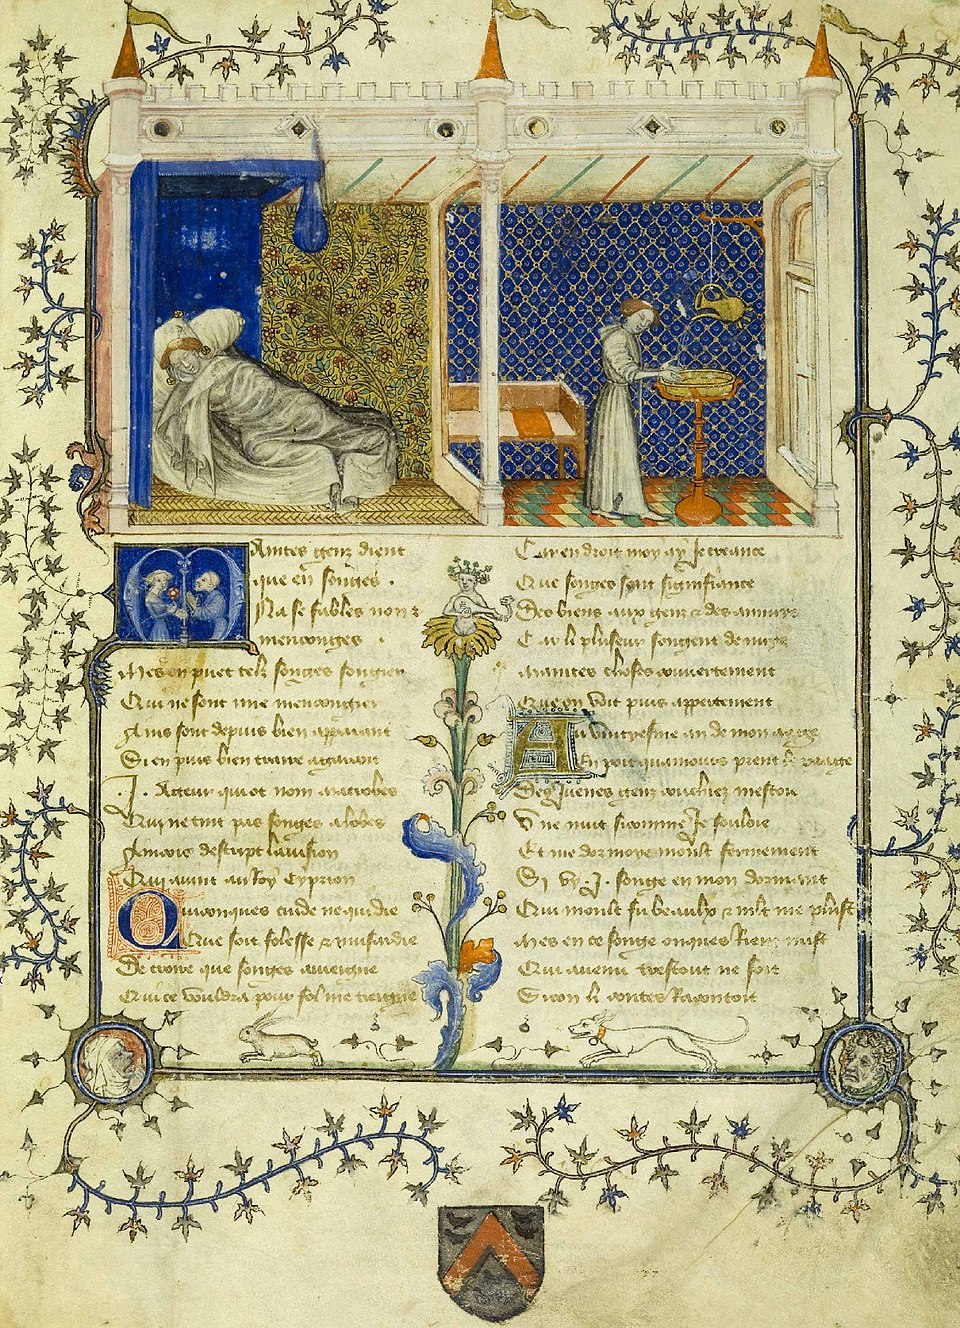 Maintes genz dient
que en songes .
Na se fables non z
menconges .
Mes on puet telz songes songier
Qui ne sont mie mencongier
Ains sont depuis bien apparant
Si en puis bien traire a garant
.J. Acteur qui ot nom macrobes
Qui ne tint pas songes a lobes
Ancois descript lavision
Qui avint au Roy Cyprion
Quiconques cuide ne qui die
Que soit folesse z musardie
De croire que songes aviegne
Qui ce vouldra pour fol me tiengne
Car endroit moy ay Je creance
Que songes sont signifiance
Des biens aux genz z des anuyz
Car li pluseur songent de nuyz
Maintes choses couvertement
Que on voit puis appertement
Au vintyesme an de mon aage
En poit quamours prent le paage
Des Juenes genz couchiez mestoie
Vne nuit si comme Je souloie
Et me dormoye moult fermement
Si vy .J. songe en mon dormant
Qui moult fu beaulx z mlt me plust
Mes en ce songe onques Riens nust
Qui avenu trestout ne soit
Si con li contes Racontoit